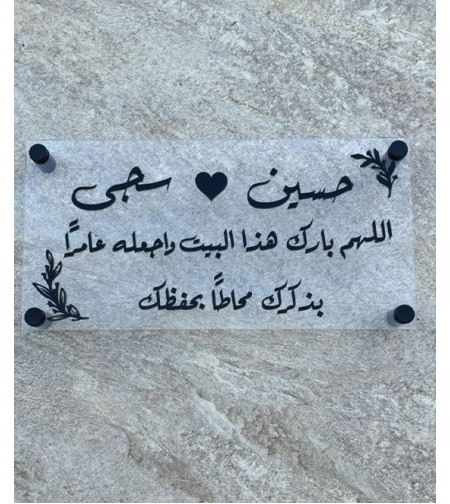 حسين ♥ سجى
اللهم بارك هذا البيت واجعله عامرًا
بذكرك محاطًا بحفظك